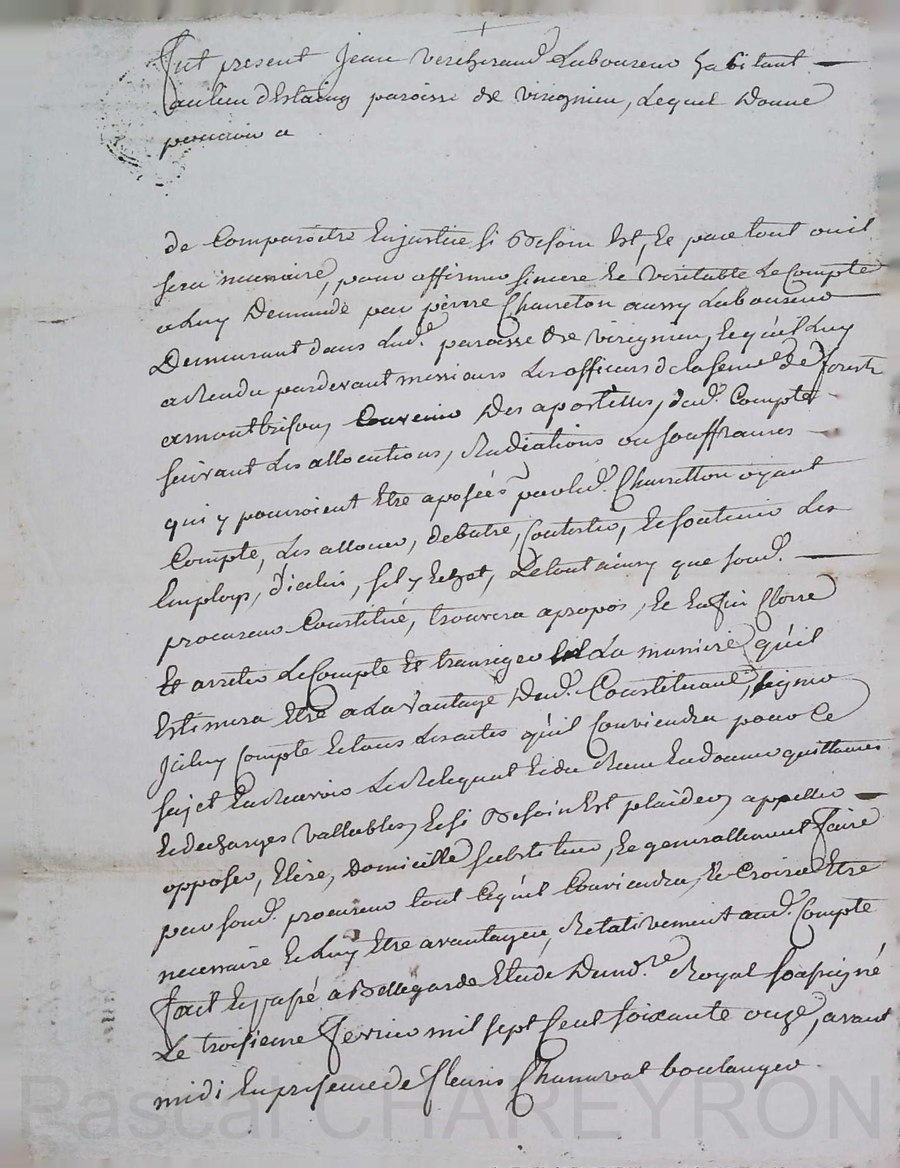 fut present jean vercherand Laboureur habitant
au lieu d'Estaing paroisse de virignieu, Lequel Donne
pouvoir a
de Comparoitre En justice si Besoin Est, Et par tout ou il
sera necessaire, pour affirmer sincere Et veritable Le Compte
a Luy Demandé par pierre Charreton aussy Laboureur
Demeurant dans Lad. paroisse de virignieu, Lequ'el Luy
a Rendu pardevant messieurs Les officiers de la sen.ée de forest
a montbrison, Convenir Des apostilles, dud. Compte
suivant Les allocutions, Radiations ou souffrances
qui y pourroient Etre aposées par led. Charretton oyant
Compte, Les allouer, debatre, Contester, Et soutenir Les
Employs, d'icelui, s'il y Echet, Le tout ainsy que sond.
procureur Constitué, trouvera apropos, Et En fin Clorre
Et arreter Le Compte Et transiger La maniere qu'il
Estimera Etre a La vantage Dud. Constituant, signer
Iceluy Compte Et tous Les actes qu'il Conviendra pour Ce
sujet En Recevoir Le Reliquat Et du Receu En donner quittances
Et decharges vallables, Et si Besoin Est plaider, appeller
opposer, Elire, Domicille substituer, Et generallement faire
par sond. procureur tout Ce qu'il Conviendra, Et Croira Etre
necessaire Et Luy Etre avantageux, Relativement aud. Compte
fait Et passé a Bellegarde Etude Du nd.re Royal soussigné
Le troisieme fevrier mil sept Cent soixante onze, avant
midi En presence de fleuris Chanavat boulanger
Pascal CHAREYRON